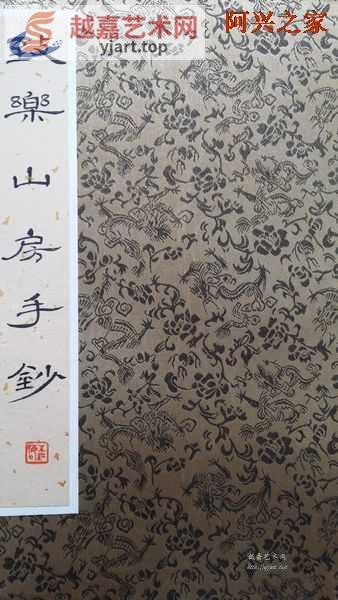 越嘉艺术网
yjart.top
阿兴之家
樂山房手鈔
越嘉艺术网
http://yjart.top